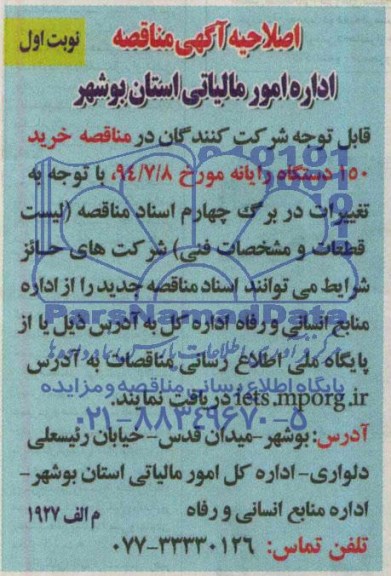 اصلاحیه آگهی مناقصه
نوبت اول
اداره امور مالیاتی استان بوشهر
قابل توجه شرکت کنندگان در مناقصه خرید
۱۵۰ دستگاه رایانه مورخ ۹۴/۷/۸، با توجه به
تغییرات در برگ چهارم اسناد مناقصه (لیست
قطعات و مشخصات فنی) شرکت های حائز
شرایط می توانند اسناد مناقصه جدید را از اداره
منابع انسانی و رفاه اداره کل به آدرس ذیل یا از
پایگاه ملی اطلاع رسانی مناقصات به آدرس
iets.mporg.ir دریافت نمایند.
آدرس: بوشهر-میدان قدس- خیابان رئیسعلی
دلواری- اداره کل امور مالیاتی استان بوشهر-
اداره منابع انسانی و رفاه
م الف ۱۹۲۷
تلفن تماس: ۰۷۷-۳۳۳۳۰۱۲۶
ParsNamadData
پایگاه اطلاع رسانی مناقصه و مزایده
۰۲۱-۸۸۳۴۹۶۷۰-۵